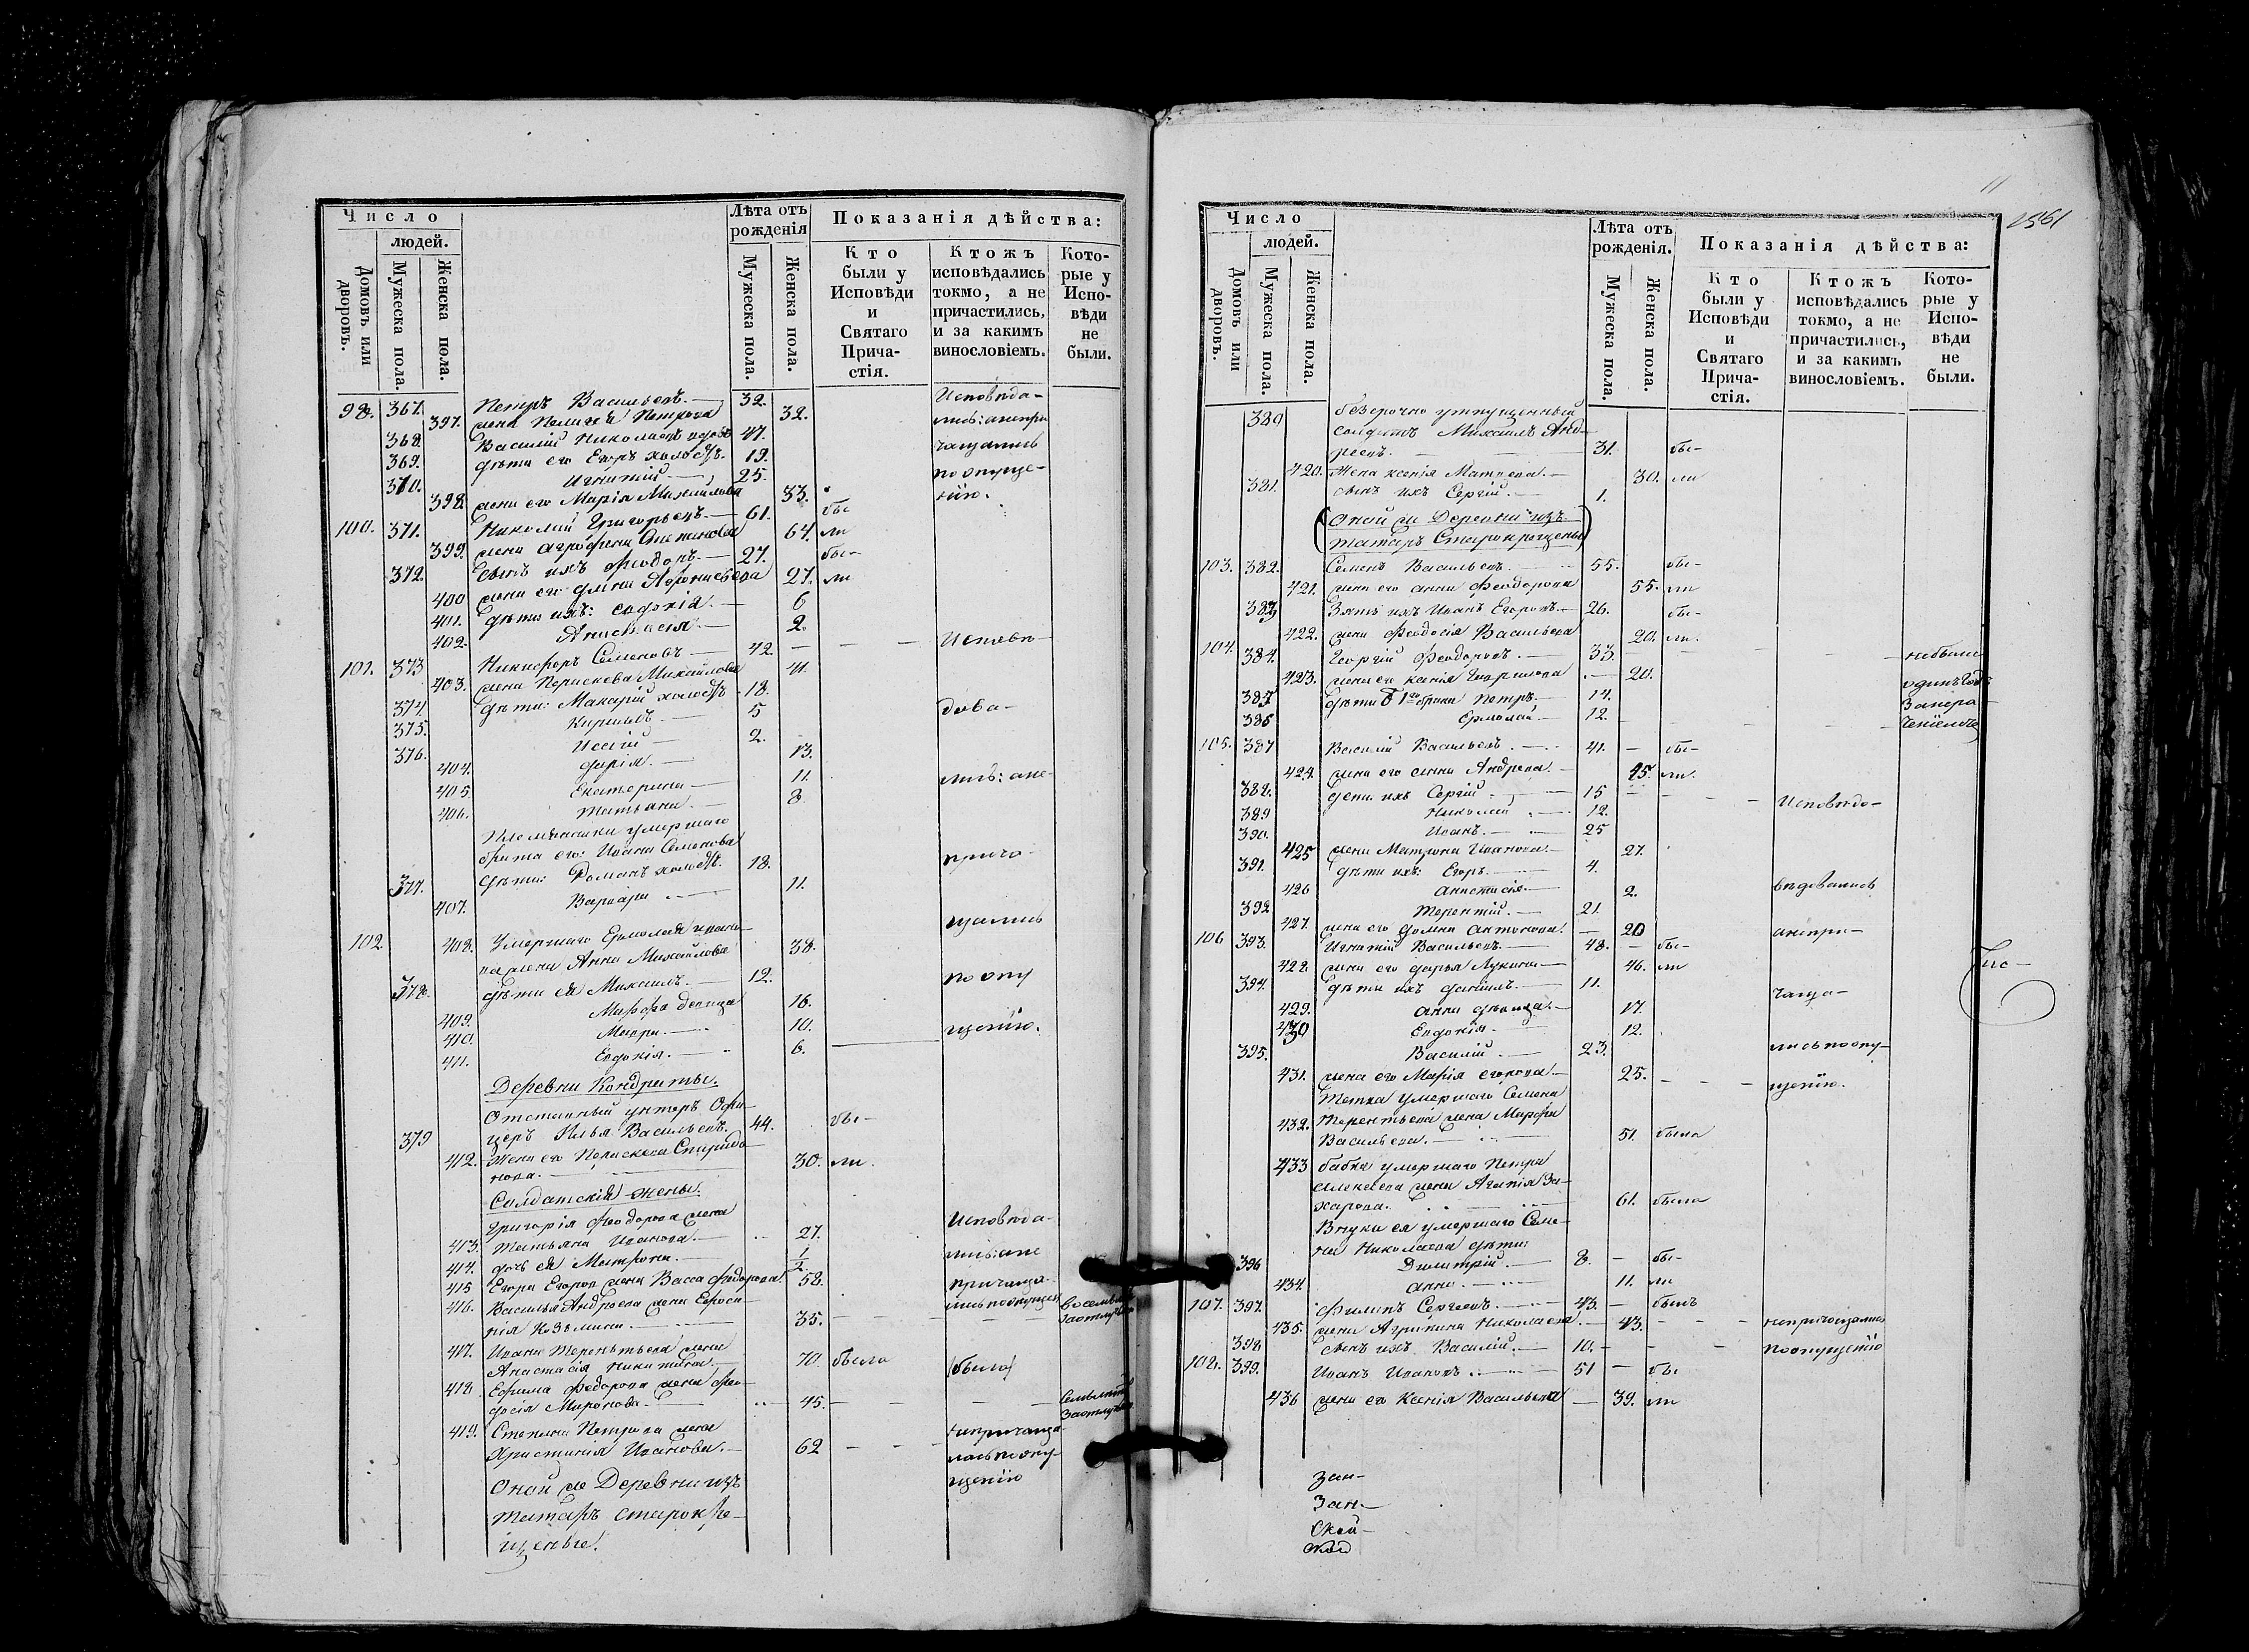 Число
людей.
Домовъ или дворовъ.
Мужеска пола.
Женска пола.
Лѣта отъ рожденія
Мужеска пола.
Женска пола.
Показанія дѣйства:
Кто были у Исповѣди и Святаго Прича-стія.
Ктожъ исповѣдались токмо, а не причастились, и за какимъ винословіемъ.
Кото-рые у Испо-вѣди не были.
98. 367. Петръ Васильевъ. 32. Исповѣда-
397. жена Пелагея Петрова 32. лись: анепри
368. Василій Николаевъ вдовъ 47. чащались
369. дѣти его Егоръ холостъ. 19. по опуще-
370. Игнатій 25. нію.
398. жена его Марія Михайлова 33.
100. 371. Николай Григорьевъ. 61. бы
399. жена Агрофена Степанова 64. ли
372. Сынъ ихъ Феодоръ. 27. бы-
400 жена его Домна Афонасьева 27. ли
401. дѣти ихъ: Евдокія. 6
402. Анастасія. 2.
101. 373 Никифоръ Семеновъ 42. Исповѣ-
403. жена Параскева Михайлова 41.
374. дѣти: Макарій холостъ 18.
375. Кирилъ. 5 дова-
376. 2.
404. Дарія. 13.
405 Екатерина 11. лись: ане-
406. Татьяна. 8
Племянники умершаго
брата его: Ивана Семенова
377. дѣти: Романъ холостъ. 18. прича-
407. Варвара 11.
щались
102. 408. Умершаго Ермолая
жена Анна Михайлова 38.
378. дѣти ея Михаилъ. 12. по опу
409. Марфа девица 16.
410. Мавра. 10. щенію.
411. Евдокія. 6.
Деревни Кондраты.
Отставный унтеръ Офи-
379 церъ Илья Васильевъ. 44. бы-
412. Жена его Параскева Спиридо- 30. ли.
нова.
Солдатскія жены.
Григорія Феодорова жена Исповѣда-
413. Татьяна Иванова. 27.
414. дочь ея Матрона. 1/2. лись: ане
415 Егора Егоров жена Васса Федорова. 58. причаща-
416. Василья Андреева жена Ефроси- лись по опущен
нія Козьмина. 35. за отлуч
417. Ивана Терентьева жена
Анастасія Никитина. 70. была (была)
418 Ефима Федорова жена Фео-
досія Миронова. 45.
419. Степана Петрова жена непричаща-
Христинія Иванова. 62 лась по опу-
щенію
Оной же Деревни изъ
татаръ старокре-
щеные.
11
Число
людей.
Домовъ или дворовъ.
Мужеска пола.
Женска пола.
Лѣта отъ рожденія.
Мужеска пола.
Женска пола.
Показанія дѣйства:
Кто были у Исповѣди и Святаго Прича-стія.
Ктожъ исповѣдались токмо, а не причастились, и за какимъ винословіемъ.
Кото-рые у Испо-вѣди не были.
380 безсрочно утпущенный
солдатъ Михаилъ Анд-
реевъ. 31. бы-
420. Жена Ксенія Матвеева. 30. ли
381. сынъ ихъ Сергій. 1.
(Оной же Деревни изъ
татаръ Старокрещены)
103. 382. Семенъ Васильевъ. 55. бы-
421. жена его Анна Феодорова 55. ли
383 Зять ихъ Иванъ Егоровъ. 26. бы-
422. жена Феодосія Васильева 20. ли.
104. 384. Георгій Феодоровъ. 33. небыли
423. жена его Ксенія Гаврилова 20. одинъ годъ
385 дѣти 1го брака Петръ. 14. За нера-
386 Ермолай. 12.
105. 387 Василій Васильевъ. 41. бы-
424. жена его Анна Андреева. 45. ли.
388. дети ихъ Сергій 15 Исповѣдо-
389 Николай 12.
390. Иванъ. 25
425 жена Матрона Иванова. 27.
391. дѣти ихъ: Егоръ. 4.
426 Анастасія. 2. вѣдовались
392 Терентій. 21.
427. жена его Домна Антонова. 20 анепри-
106 393. Игнатій Васильевъ. 48. бы-
428 жена его Дарья Лукина 46. ли
394. дѣти ихъ Данилъ. 11.
429. Анна дѣвица. 17. чаща-
430 Евдокія. 12.
395. Василій. 23. лись по опу-
431. жена его Марія Егорова. 25. щенію.
Тетка умершаго Семена
432. Терентьева жена Марфа
Васильева. 51. была
433 бабка умершаго Петра
Алексеева жена Агапія За-
харова. 61. была
Внуки ея умершаго Семе-
на Николаева дѣти:
396 Димитрій. 8. бы-
434. Анна. 11. ли
107. 397. Филипъ Сергеевъ. 43. былъ
435. жена Агрипина Николаева 43. непричащались
398. сынъ ихъ Василій. 10. по опущенію
108. 399. Иванъ Ивановъ. 51 бы
436 жена его Ксенія Васильева 39. ли
зан-
Зан-
Ской-